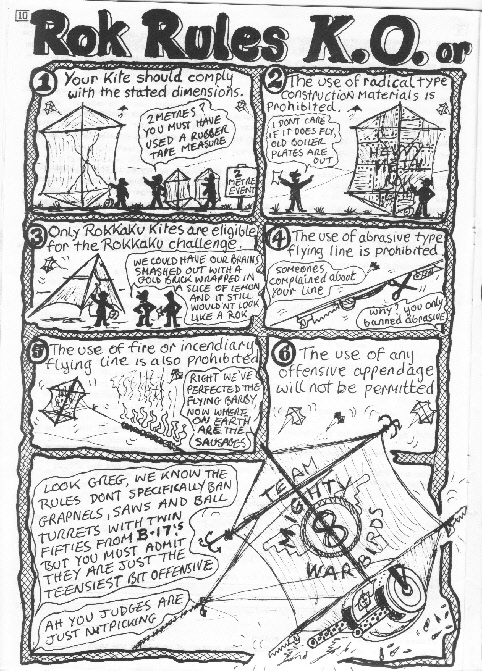 10
Rok Rules K.O. or
1 Your Kite should comply
with the stated dimensions.
2 METRES?
YOU MUST HAVE
USED A RUBBER
TAPE MEASURE
2
METRE
EVENT
2 The use of radical type
construction materials is
prohibited
I DONT CARE
IF IT DOES FLY,
OLD BOILER
PLATES ARE
OUT
HEAVY
METAL
3 Only Rokkaku Kites are eligible
for the Rokkaku challenge.
WE COULD HAVE OUR BRAINS
SMASHED OUT WITH A
GOLD BRICK WRAPPED IN
A SLICE OF LEMON
AND IT STILL
WOULDNT LOOK
LIKE A ROK
4 The use of abrasive type
flying line is prohibited
someones
complained about
your line
why? you only
banned abrasive
5 The use of fire or incendiary
flying line is also prohibited
RIGHT WE'VE
PERFECTED THE
FLYING BARBY
NOW WHERE
ON EARTH
ARE THE
SAUSAGES
6 The use of any
offensive appendage
will not be permitted
LOOK GREG, WE KNOW THE
RULES DONT SPECIFICALLY BAN
GRAPNELS, SAWS AND BALL
TURRETS WITH TWIN
FIFTIES FROM B-17's
BUT YOU MUST ADMIT
THEY ARE JUST THE
TEENSIEST BIT OFFENSIVE
AH YOU JUDGES ARE
JUST NITPICKING
TEAM
MIGHTY
$
WAR BIRDS